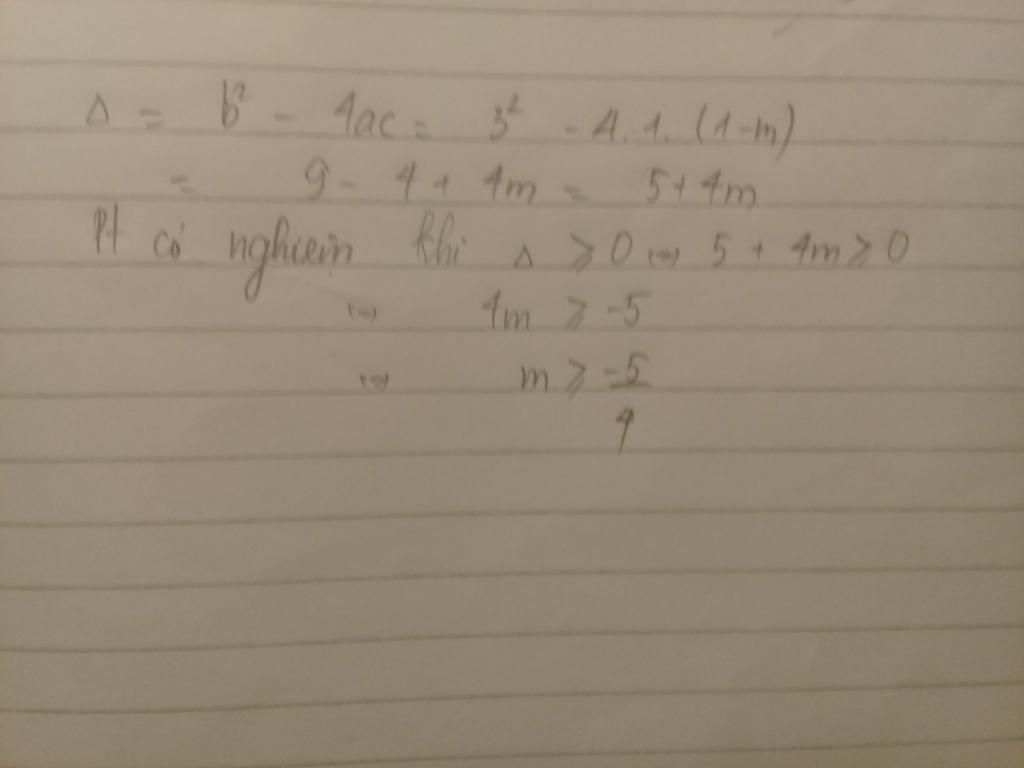 Δ = b² - 4ac = 3² - 4.1.(1-m)
= 9 - 4 + 4m = 5 + 4m
Pt có nghiệm khi Δ ⩾ 0 ⇔ 5 + 4m ⩾ 0
⇔ 4m ⩾ -5
⇔ m ⩾ -5/4